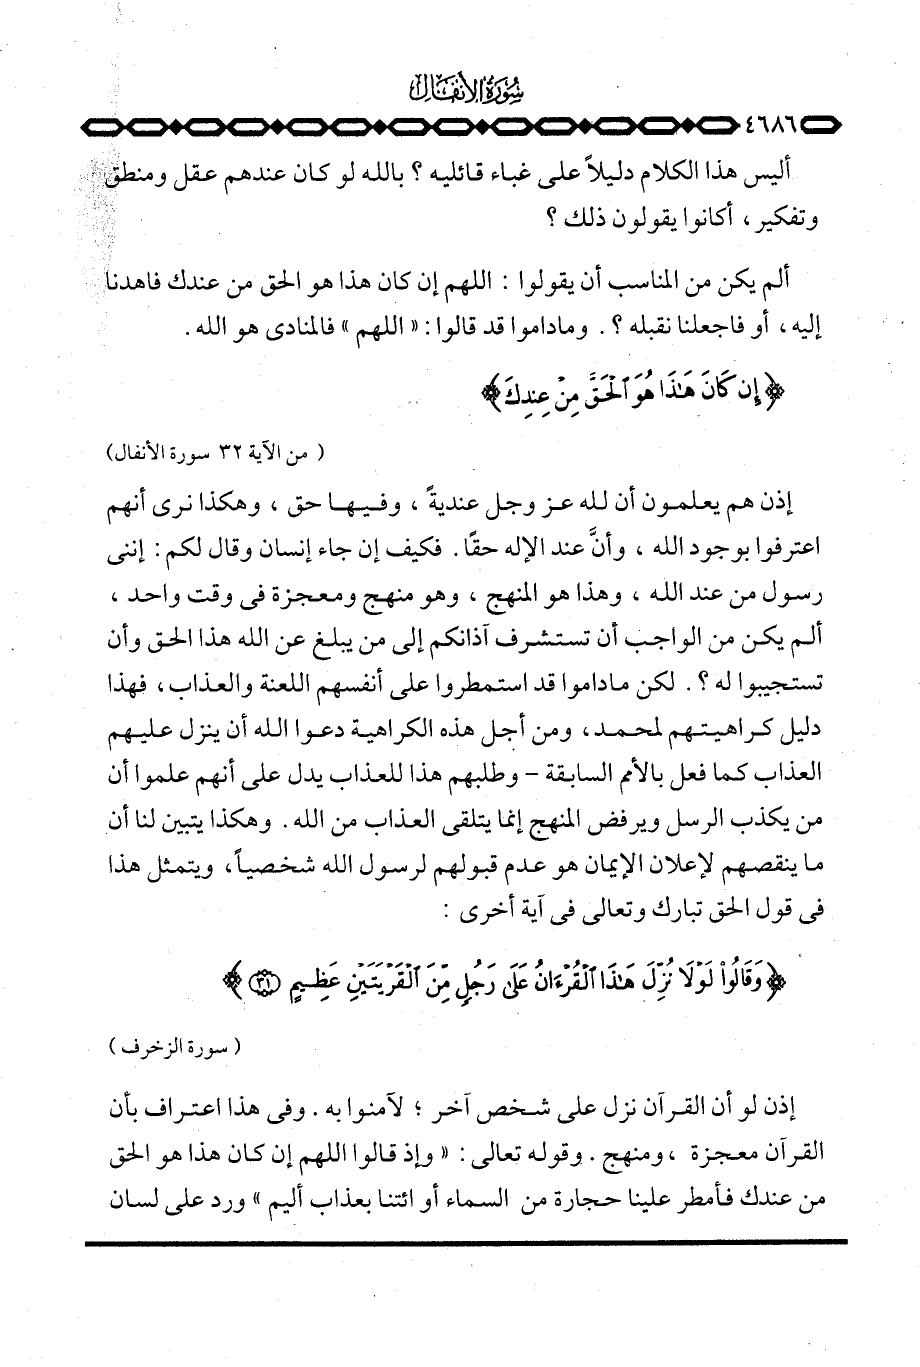 سورة الأنفال
٤٦٨٦
أليس هذا الكلام دليلاً على غباء قائليه ؟ بالله لو كان عندهم عقل ومنطق
وتفكير ، أكانوا يقولون ذلك ؟
ألم يكن من المناسب أن يقولوا : اللهم إن كان هذا هو الحق من عندك فاهدنا
إليه ، أو فاجعلنا نقبله ؟ . وماداموا قد قالوا : « اللهم » فالمنادى هو الله .
﴿ إِن كَانَ هَٰذَا هُوَ ٱلْحَقَّ مِنْ عِندِكَ ﴾
( من الآية ٣٢ سورة الأنفال)
إذن هم يعلمون أن لله عز وجل عنديةً ، وفيها حق ، وهكذا نرى أنهم
اعترفوا بوجود الله ، وأنَّ عند الإله حقًا . فكيف إن جاء إنسان وقال لكم : إننى
رسول من عند الله ، وهذا هو المنهج ، وهو منهج ومعجزة فى وقت واحد ،
ألم يكن من الواجب أن تستشرف آذانكم إلى من يبلغ عن الله هذا الحق وأن
تستجيبوا له ؟ . لكن ماداموا قد استمطروا على أنفسهم اللعنة والعذاب ، فهذا
دليل كراهيتهم لمحمد ، ومن أجل هذه الكراهية دعوا الله أن ينزل عليهم
العذاب كما فعل بالأمم السابقة - وطلبهم هذا للعذاب يدل على أنهم علموا أن
من يكذب الرسل ويرفض المنهج إنما يتلقى العذاب من الله . وهكذا يتبين لنا أن
ما ينقصهم لإعلان الإيمان هو عدم قبولهم لرسول الله شخصياً ، ويتمثل هذا
فى قول الحق تبارك وتعالى فى آية أخرى :
﴿ وَقَالُوا۟ لَوْلَا نُزِّلَ هَٰذَا ٱلْقُرْءَانُ عَلَىٰ رَجُلٍ مِّنَ ٱلْقَرْيَتَيْنِ عَظِيمٍ ٣١ ﴾
( سورة الزخرف )
إذن لو أن القرآن نزل على شخص آخر ؛ لآمنوا به . وفى هذا اعتراف بأن
القرآن معجزة ، ومنهج . وقوله تعالى : « وإذ قالوا اللهم إن كان هذا هو الحق
من عندك فأمطر علينا حجارة من السماء أو ائتنا بعذاب أليم » ورد على لسان